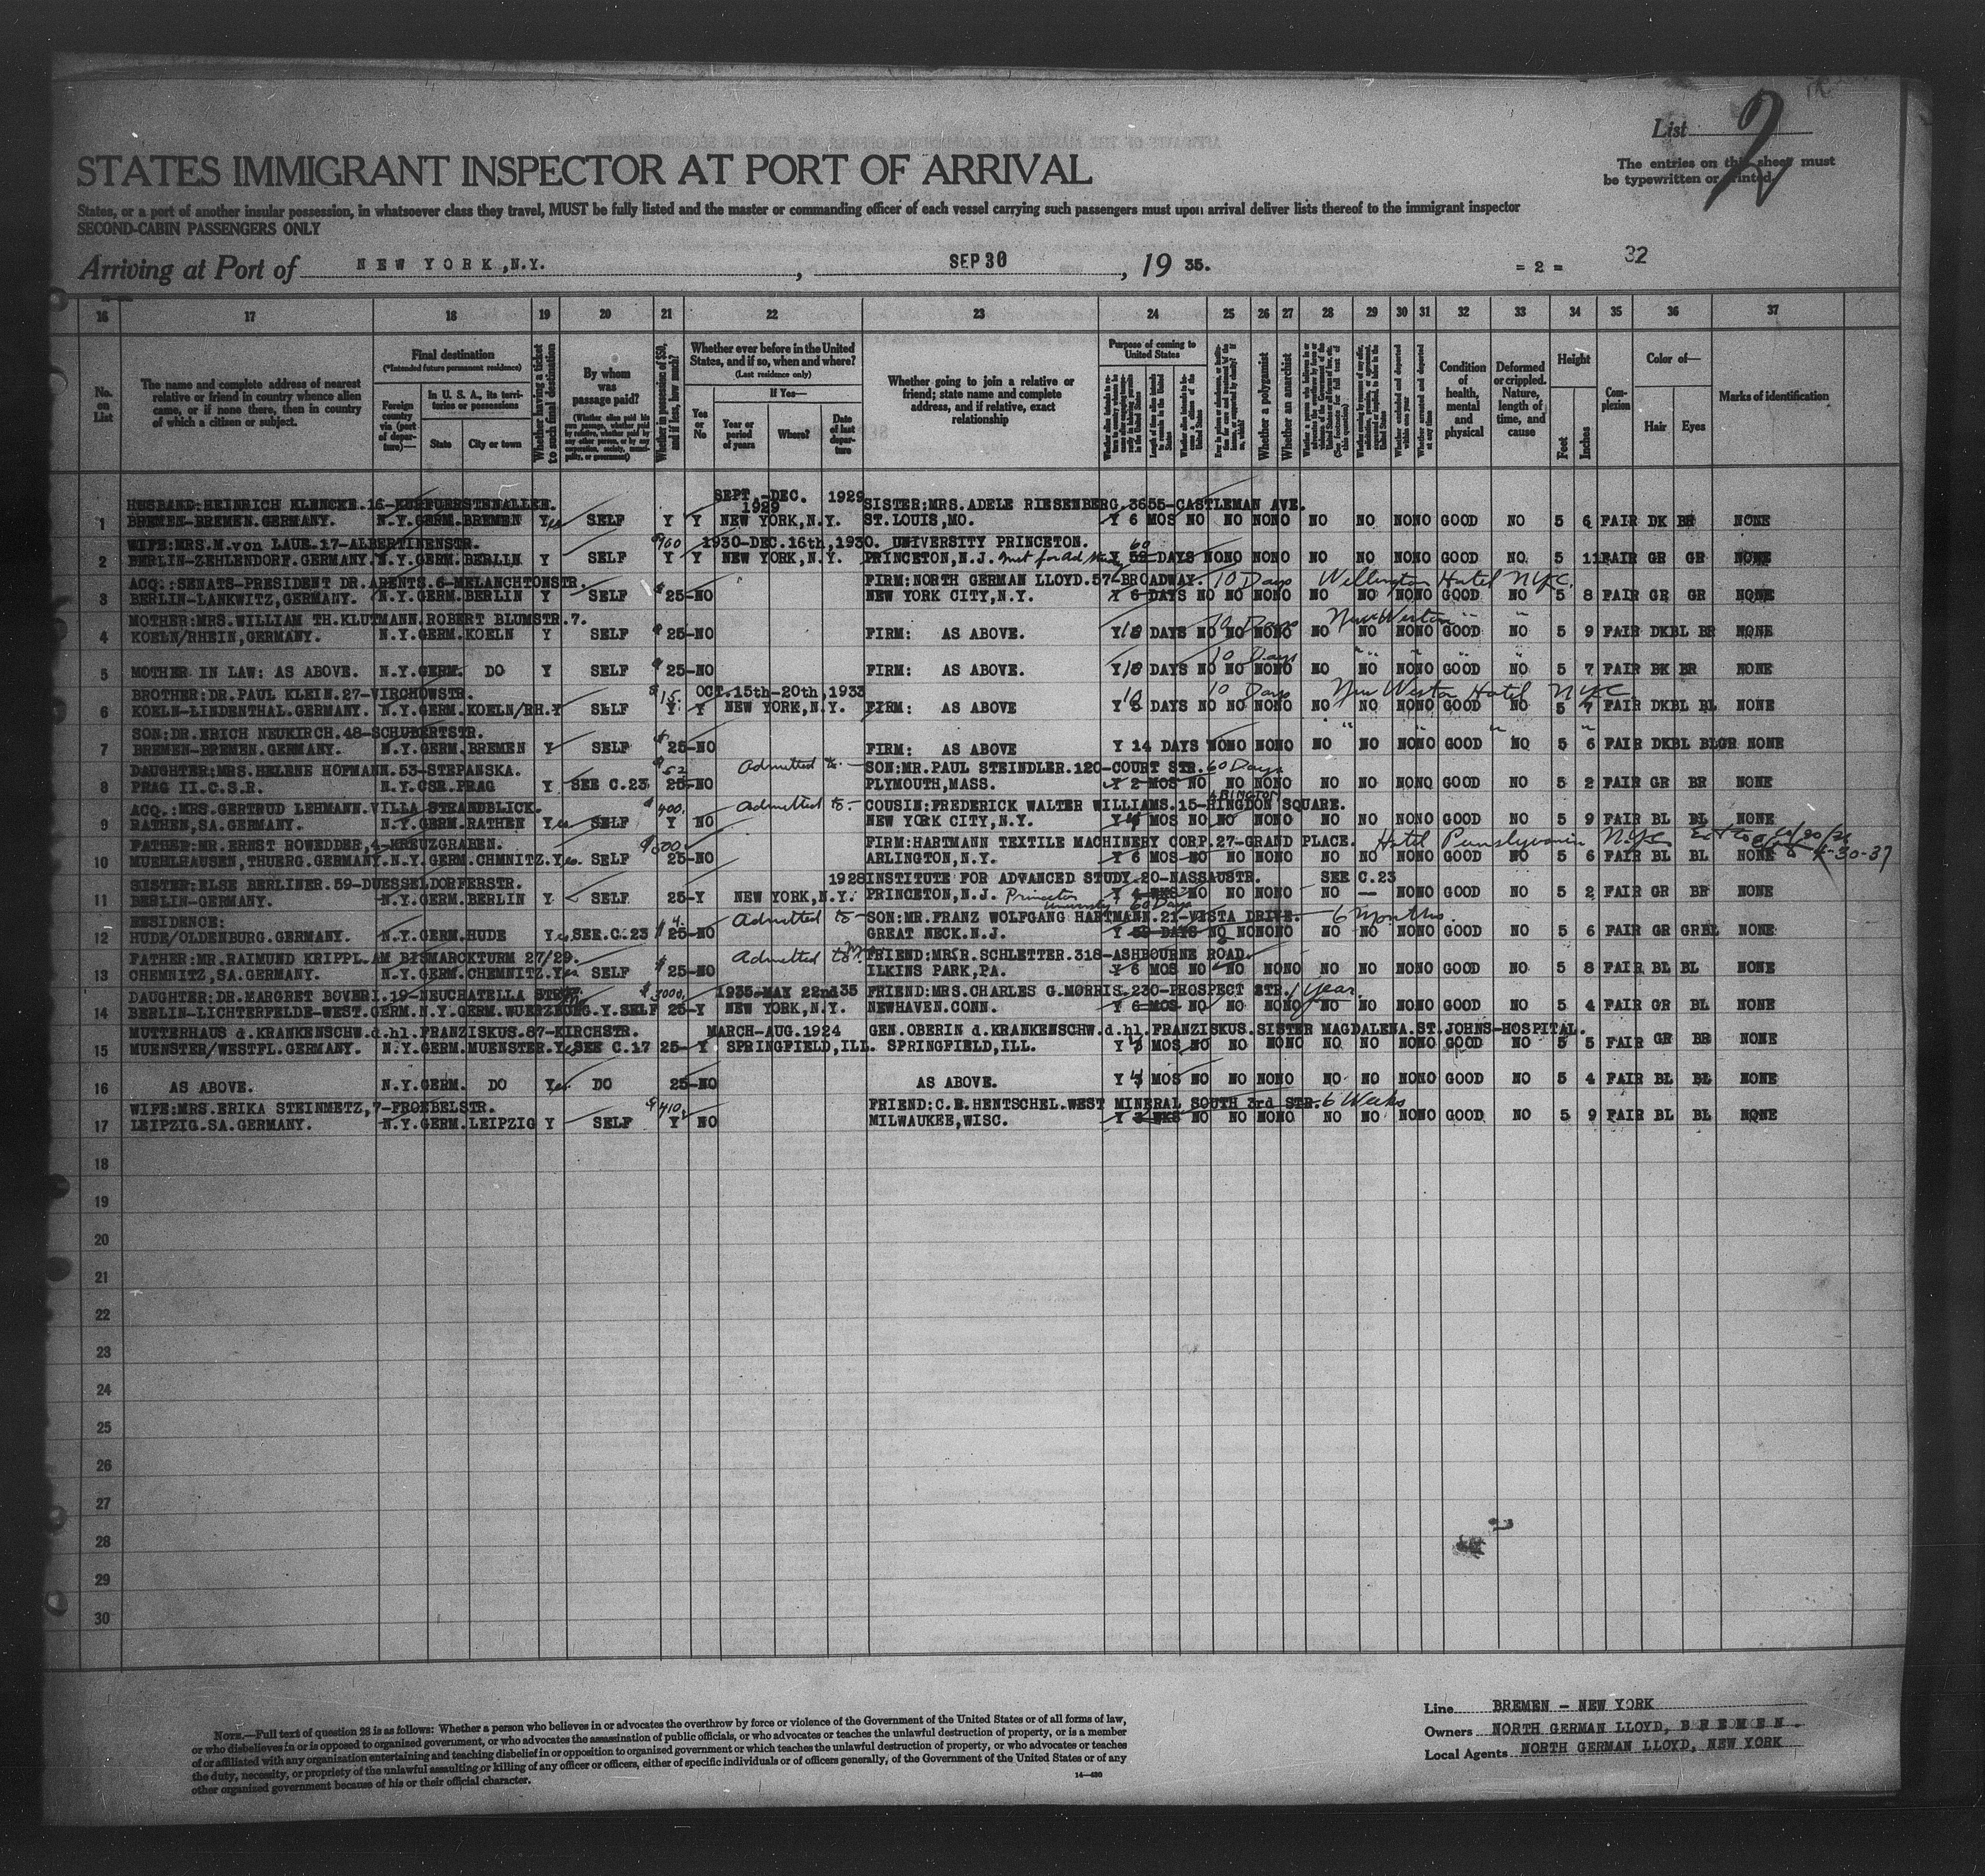 List 2
STATES IMMIGRANT INSPECTOR AT PORT OF ARRIVAL
The entries on this sheet must
be typewritten or printed.
States, or a port of another insular possession, in whatsoever class they travel, MUST be fully listed and the master or commanding officer of each vessel carrying such passengers must upon arrival deliver lists thereof to the immigrant inspector
SECOND-CABIN PASSENGERS ONLY
Arriving at Port of NEW YORK, N.Y. , SEP 30 , 19 35. = 2 = 32
16 17 18 19 20 21 22 23 24 25 26 27 28 29 30 31 32 33 34 35 36 37
No. on List
The name and complete address of nearest relative or friend in country whence alien came, or if none there, then in country of which a citizen or subject.
Final destination
(*Intended future permanent residence)
Foreign country via (port of departure)—
In U. S. A., its territories or possessions
State
City or town
Whether having a ticket to such final destination
By whom was passage paid?
Whether in possession of $50, and if less, how much?
Whether ever before in the United States, and if so, when and where?
(Last residence only)
Yes or No
If Yes—
Year or period of years
Where?
Date of last departure
Whether going to join a relative or friend; state name and complete address, and if relative, exact relationship
Purpose of coming to United States
Whether a polygamist
Whether an anarchist
Condition of health, mental and physical
Deformed or crippled. Nature, length of time, and cause
Height
Feet
Inches
Complexion
Color of—
Hair
Eyes
Marks of identification
HUSBAND:HEINRICH KLENCKE.16-KURFUERSTENALLEE. SEPT.-DEC. 1929 1929 SISTER:MRS.ADELE RIESENBERG.3655-CASTLEMAN AVE.
1 BREMEN-BREMEN.GERMANY. N.Y.GERM.BREMEN Yes SELF Y Y NEW YORK,N.Y. ST.LOUIS,MO. Y 6 MOS NO NO NONO NO NO NONO GOOD NO 5 6 FAIR DK BR NONE
WIFE:MRS.M.von LAUE.17-ALBERTINENSTR. $160 1930-DEC.16th,1930. UNIVERSITY PRINCETON. 60
2 BERLIN-ZEHLENDORF.GERMANY.N.Y.GERM.BERLIN Y SELF Y Y NEW YORK,N.Y. PRINCETON,N.J. Y DAYS NONO NONO NO NO NONO GOOD NO. 5 11 FAIR GR GR NONE
ACQ.:SENATS-PRESIDENT DR.ARENTS.6-MELANCHTONSTR. FIRM:NORTH GERMAN LLOYD.57-BROADWAY. 10 Days Wellington Hotel NYC.
3 BERLIN-LANKWITZ,GERMANY. N.Y.GERM.BERLIN Y SELF $25-NO NEW YORK CITY,N.Y. Y 6 DAYS NO NO NONO NO NO NONO GOOD NO 5 8 FAIR GR GR NONE
MOTHER:MRS.WILLIAM TH.KLUTMANN.ROBERT BLUMSTR.7. 10 Days New Weston " "
4 KOELN/RHEIN,GERMANY. N.Y.GERM.KOELN Y SELF $25-NO FIRM: AS ABOVE. Y DAYS NO NO NONO NO NO NONO GOOD NO 5 9 FAIR DKBL BR NONE
10 Days " " " "
5 MOTHER IN LAW: AS ABOVE. N.Y.GERM. DO Y SELF $25-NO FIRM: AS ABOVE. Y DAYS NO NO NONO NO NO NONO GOOD NO 5 7 FAIR BK BR NONE
BROTHER:DR.PAUL KLEIN.27-VIRCHOWSTR. $15. OCT.15th-20th,1933 10 10 Days New Weston Hotel NYC
6 KOELN-LINDENTHAL.GERMANY. N.Y.GERM.KOELN/RH.Y SELF Y Y NEW YORK,N.Y. FIRM: AS ABOVE Y DAYS NO NO NONO NO NO NONO GOOD NO 5 7 FAIR DKBL BL NONE
SON:DR.ERICH NEUKIRCH.48-SCHUBERTSTR. " " "
7 BREMEN-BREMEN.GERMANY. N.Y.GERM.BREMEN Y SELF $25-NO FIRM: AS ABOVE Y 14 DAYS NONO NONO NO NO NONO GOOD NO 5 6 FAIR DKBL BLGR NONE
DAUGHTER:MRS.HELENE HOFMANN.53-STEPANSKA. $52 Admitted to- SON:MR.PAUL STEINDLER.120-COURT STR. 60 Days
8 PRAG II.C.S.R. N.Y.CSR.PRAG Y SEE C.23 25-NO PLYMOUTH,MASS. Y 2 MOS NO NO NONO NO NO NONO GOOD NO 5 2 FAIR GR BR NONE
ACQ.:MRS.GERTRUD LEHMANN.VILLA STRANDBLICK. $400. Admitted to- COUSIN:FREDERICK WALTER WILLIAMS.15-HINGDON SQUARE. ABINGTON
9 RATHEN,SA.GERMANY. N.Y.GERM.RATHEN Yes SELF Y NO NEW YORK CITY,N.Y. Y MOS NO NO NONO NO NO NONO GOOD NO 5 9 FAIR BL BL NONE
FATHER:MR.ERNST ROWEDDER,4-KREUZGRABEN. $500 FIRM:HARTMANN TEXTILE MACHINERY CORP.27-GRAND PLACE. Hotel Pennsylvania NYC
10 MUEHLHAUSEN,THUERG.GERMANY.N.Y.GERM.CHMNITZ.Yes. SELF 25-NO ARLINGTON,N.Y. Y 6 MOS NO NO NONO NO NO NONO GOOD NO 5 6 FAIR BL BL NONE 4-30-37
SISTER:ELSE BERLINER.59-DUESSELDORFERSTR. 1928 INSTITUTE FOR ADVANCED STUDY.20-NASSAUSTR. SEE C.23
11 BERLIN-GERMANY. N.Y.GERM.BERLIN Y SELF 25-Y NEW YORK,N.Y. PRINCETON,N.J. Princeton University 60 Days Y 4 WKS NO NO NONO NO — NONO GOOD NO 5 2 FAIR GR BR NONE
RESIDENCE: $4. Admitted to- SON:MR.FRANZ WOLFGANG HARTMANN.21-VISTA DRIVE. 6 months.
12 HUDE/OLDENBURG.GERMANY. N.Y.GERM.HUDE Yes SEE.C.23 25-NO GREAT NECK.N.J. Y DAYS NO NONONO NO NO NONO GOOD NO 5 6 FAIR GR GRBL NONE
FATHER:MR.RAIMUND KRIPPL.AM BISMARCKTURM 27/29. Admitted to FRIEND:MR.R.SCHLETTER.318-ASHBOURNE ROAD.
13 CHEMNITZ,SA.GERMANY. N.Y.GERM.CHEMNITZ.Yes SELF $25-NO ILKINS PARK,PA. Y 6 MOS NO NO NONO NO NO NONO GOOD NO 5 8 FAIR BL BL NONE
DAUGHTER:DR.MARGRET BOVERI.19-NEUCHATELLA STR. $3000. 1935-MAY 22nd35 FRIEND:MRS.CHARLES G.MORRIS.230-PROSPECT STR. 1 year.
14 BERLIN-LICHTERFELDE-WEST.GERM.N.Y.GERM.WUERZBURG.Y.SELF 25-Y NEW YORK,N.Y. NEWHAVEN.CONN. Y 6 MOS NO NO NONO NO NO NONO GOOD NO 5 4 FAIR GR BL NONE
MUTTERHAUS d.KRANKENSCHW.d.hl.FRANZISKUS.87-KIRCHSTR. MARCH-AUG.1924 GEN.OBERIN d.KRANKENSCHW.d.hl.FRANZISKUS.SISTER MAGDALENA.ST.JOHNS-HOSPITAL.
15 MUENSTER/WESTFL.GERMANY. N.Y.GERM.MUENSTER.Yes SEE C.17 25- Y SPRINGFIELD,ILL. SPRINGFIELD,ILL. Y MOS NO NO NONO NO NO NONO GOOD NO 5 5 FAIR GR BR NONE
16 AS ABOVE. N.Y.GERM. DO Yes. DO 25-NO AS ABOVE. Y MOS NO NO NONO NO NO NONO GOOD NO 5 4 FAIR BL BL NONE
WIFE:MRS.ERIKA STEINMETZ,7-FROEBELSTR. $410. FRIEND:C.E.HENTSCHEL.WEST MINERAL SOUTH 3rd STR. 6 Weeks
17 LEIPZIG.SA.GERMANY. N.Y.GERM.LEIPZIG Y SELF Y NO MILWAUKEE,WISC. Y 3 WKS NO NO NONO NO NO NONO GOOD NO 5 9 FAIR BL BL NONE
18
19
20
21
22
23
24
25
26
27
28
29
30
NOTE.—Full text of question 28 is as follows: Whether a person who believes in or advocates the overthrow by force or violence of the Government of the United States or of all forms of law,
or who disbelieves in or is opposed to organized government, or who advocates the assassination of public officials, or who advocates or teaches the unlawful destruction of property, or is a member
of or affiliated with any organization entertaining and teaching disbelief in or opposition to organized government or which teaches the unlawful destruction of property, or who advocates or teaches
the duty, necessity, or propriety of the unlawful assaulting or killing of any officer or officers, either of specific individuals or of officers generally, of the Government of the United States or of any
other organized government because of his or their official character.
14—430
Line BREMEN - NEW YORK
Owners NORTH GERMAN LLOYD, BREMEN.
Local Agents NORTH GERMAN LLOYD, NEW YORK